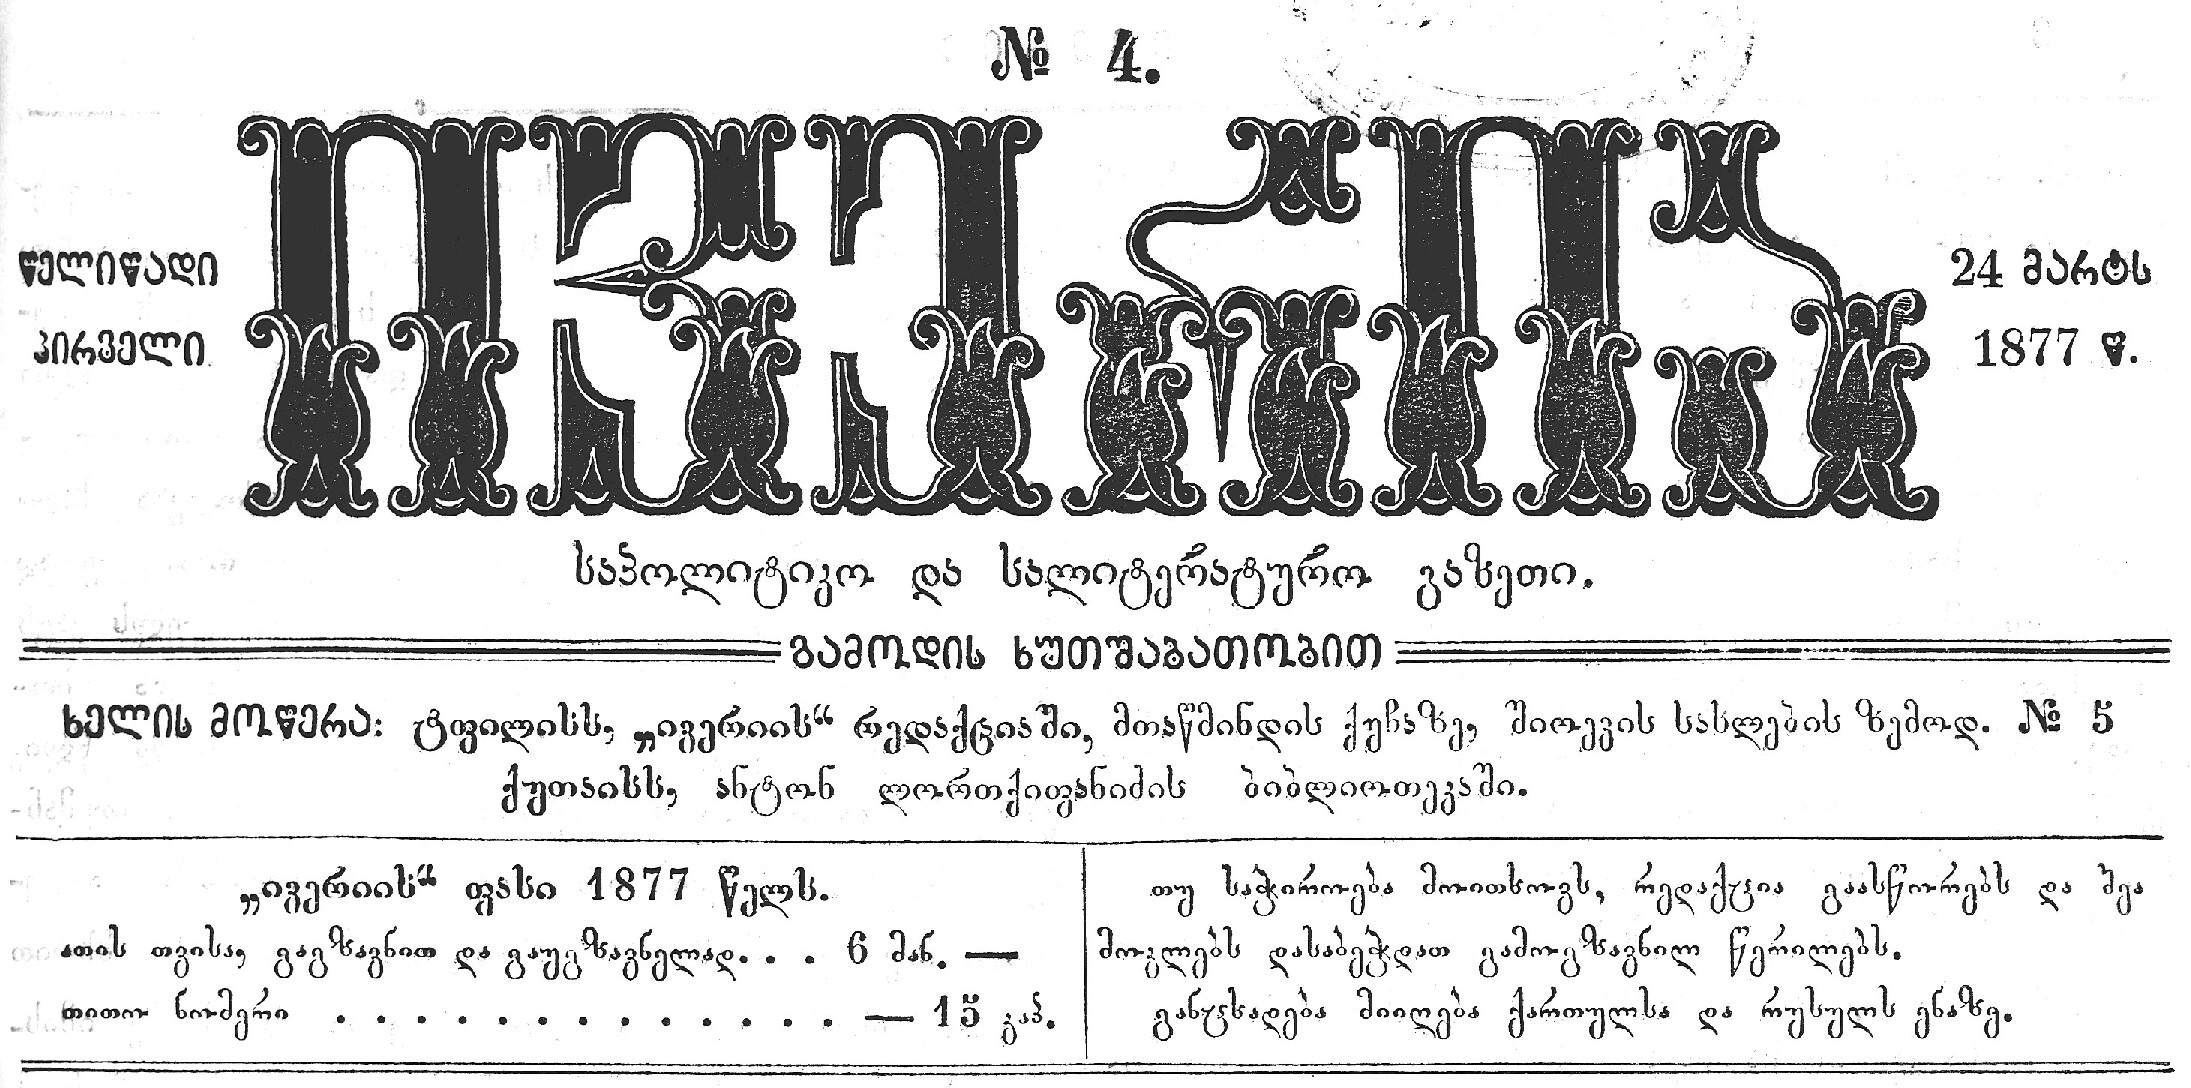 № 4.
ივერია
წელიწადი
პირველი
24 მარტს
1877 წ.
საპოლიტიკო და სალიტერატურო გაზეთი.
გამოდის ხუთშაბათობით
ხელის მოწერა: ტფილისს, „ივერიის“ რედაქციაში, მთაწმინდის ქუჩაზე, შიოევის სახლების ზემოდ. № 5
ქუთაისს, ანტონ ლორთქიფანიძის ბიბლიოთეკაში.
„ივერიის“ ფასი 1877 წელს.
ათის თვისა, გაგზავნით და გაუგზავნელად. . . 6 მან. —
თითო ნომერი . . . . . . . . . . . . . . . — 15 კაპ.
თუ საჭიროება მოითხოვს, რედაქცია გაასწორებს და შეა
მოკლებს დასაბეჭდათ გამოგზავნილ წერილებს.
განცხადება მიიღება ქართულსა და რუსულს ენაზე.